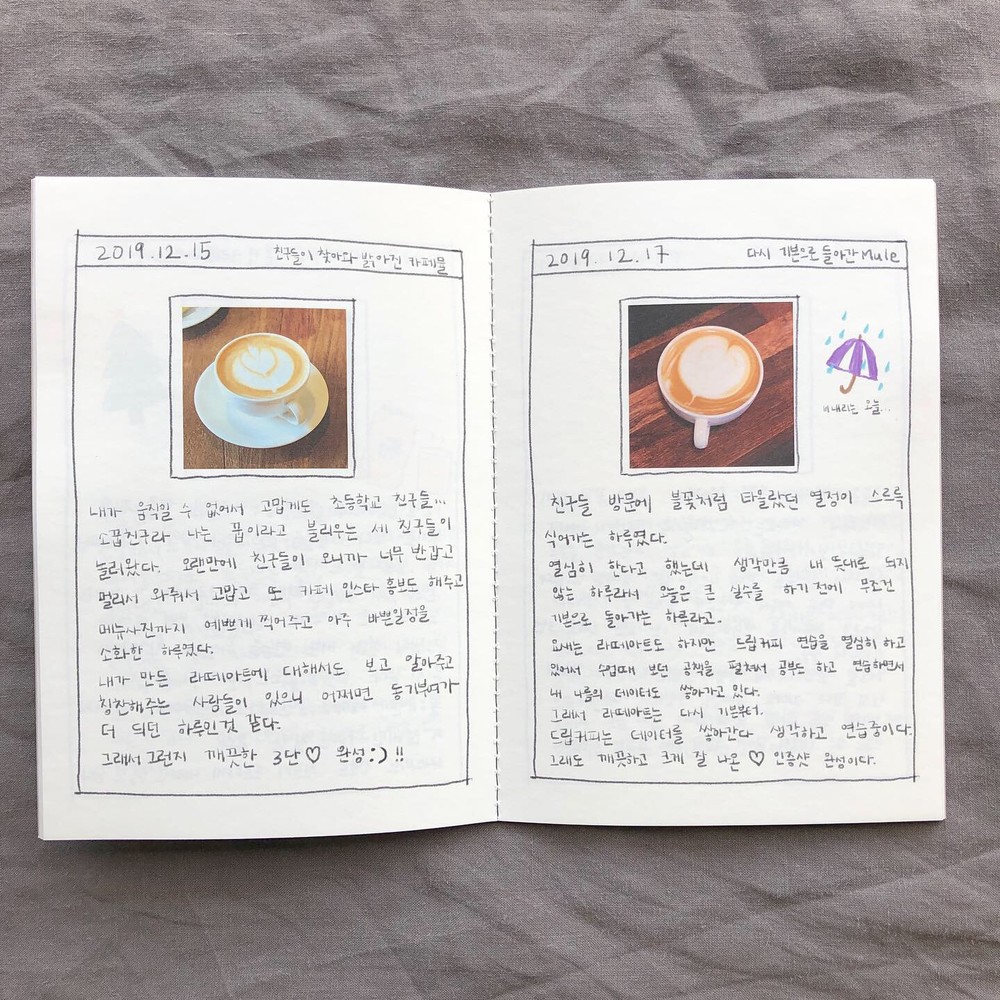 2019.12.15
친구들이 찾아와 밝아진 카페뮬
내가 움직일 수 없어서 고맙게도 초등학교 친구들...
소꿉친구라 나는 꿉이라고 블리우는 세 친구들이
놀러왔다. 오랜만에 친구들이 오니까 너무 반갑고
멀리서 와줘서 고맙고 또 카페 인스타 홍보도 해주고
메뉴사진까지 예쁘게 찍어주고 아주 바쁜일정을
소화한 하루였다.
내가 만든 라떼아트에 대해서도 보고 알아주고
칭찬해주는 사람들이 있으니 어쩌면 동기부여가
더 되던 하루인것 같다.
그래서 그런지 깨끗한 3단♡ 완성:)!!
2019.12.17
다시 기본으로 돌아간 Mule
비내리는 오늘...
친구들 방문에 불꽃처럼 타올랐던 열정이 스르륵
식어가는 하루였다.
열심히 한다고 했는데 생각만큼 내 뜻대로 되지
않는 하루라서 오늘은 큰 실수를 하기 전에 무조건
기본으로 돌아가는 하루라고.
요새는 라떼아트도 하지만 드립커피 연습을 열심히 하고
있어서 수업때 보던 공책을 펼쳐서 공부도 하고 연습하면서
내 나름의 데이터도 쌓아가고 있다.
그래서 라떼아트는 다시 기본부터.
드립커피는 데이터를 쌓아간다 생각하고 연습중이다.
그래도 깨끗하고 크게 잘 나온 ♡ 인증샷 완성이다.